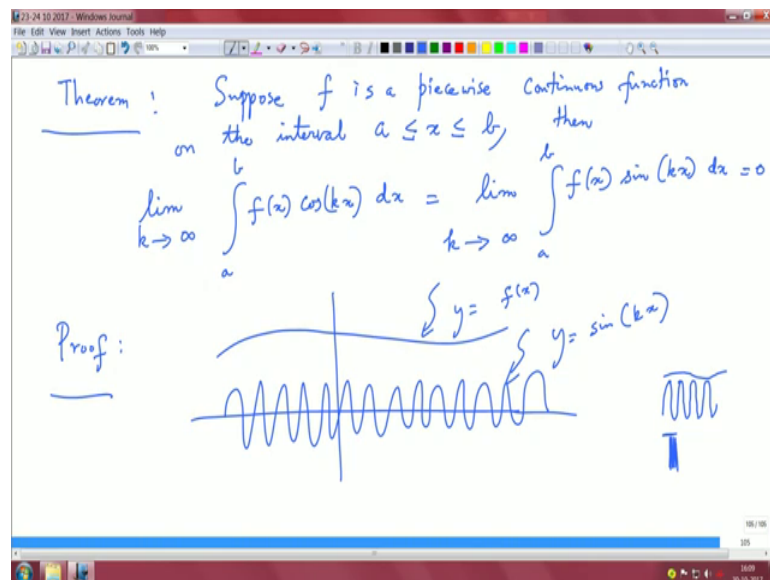 23-24 10 2017 - Windows Journal
File Edit View Insert Actions Tools Help
100%
Theorem : Suppose f is a piecewise continuous function
on the interval a ≤ x ≤ b, then
lim k→∞ ∫_a^b f(x) cos(kx) dx = lim k→∞ ∫_a^b f(x) sin(kx) dx = 0
Proof :
y = f(x)
y = sin(kx)
106/106
105
16:09